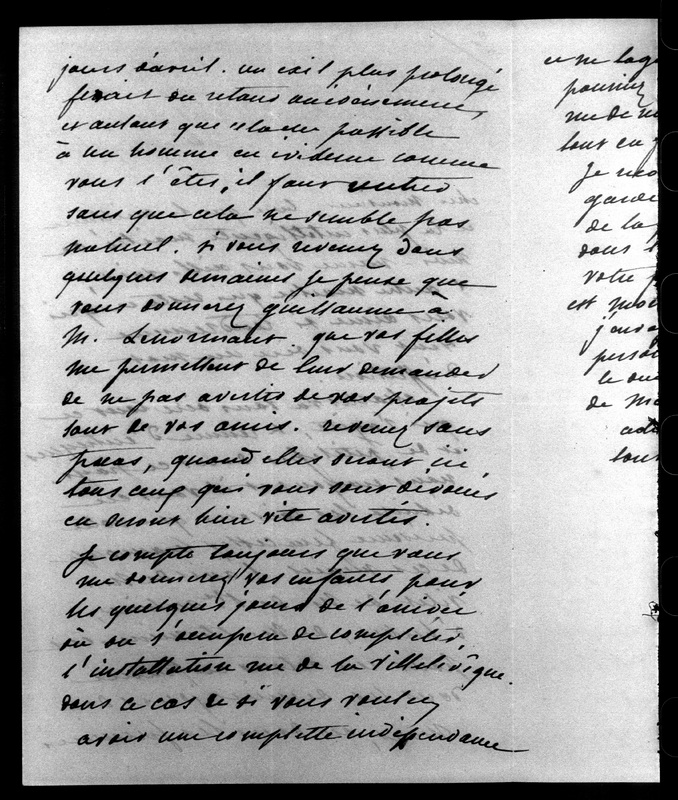 jours d'avril. un exil plus prolongé
ferait du retard
et autant que cela est possible
à un homme en évidence comme
vous l'êtes, il faut rentrer
sans que cela ne semble pas
naturel. si vous revenez dans
quelques semaines je pense que
vous donnerez guillaume à
M. Lenormant que vos filles
me permettent de leur demander
de ne pas avertir de vos projets
tant de vos amis. revenez sans
fracas, quand elles seront ici,
tous ceux qui vous sont dévoués
en seront bien vite avertis.
je compte toujours que vous
me donnerez vos enfants pour
les quelques jours de l'arrivée
où on s'occupera de compléter
l'installation rue de la ville l'évêque.
dans ce cas si vous voulez
avoir une complette indépendance
ce ne
pourriez
rue de
tout en
je
garde
de la
dans
votre
est
j'

le
de

tout